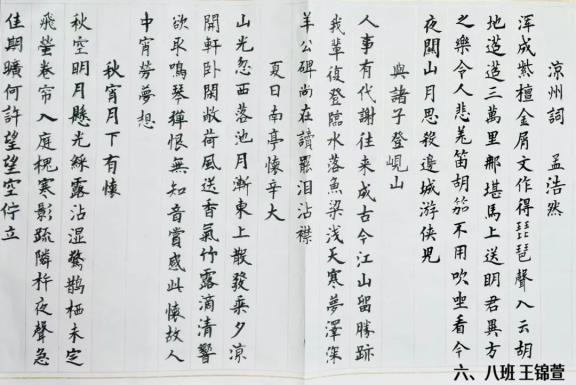 涼州詞 孟浩然
浑成紫檀金屑文作得琵琶聲入云胡
地迢迢三萬里那堪馬上送明君異方
之樂令人悲羌笛胡笳不用吹坐看今
夜關山月思殺邊城游俠兒
與諸子登峴山
人事有代謝往来成古今江山留勝跡
我輩復登臨水落魚梁浅天寒夢澤深
羊公碑尚在讀罷泪沾襟
夏日南亭懷辛大
山光忽西落池月漸東上散發乘夕凉
開軒卧閑敞荷風送香氣竹露滴清響
欲取鳴琴彈恨無知音賞感此懷故人
中宵勞夢想
秋宵月下有懷
秋空明月懸光綵露沾湿驚鵲栖未定
飛螢卷帘入庭槐寒影疏隣杵夜聲急
佳期曠何許望望空佇立
六、八班 王锦萱